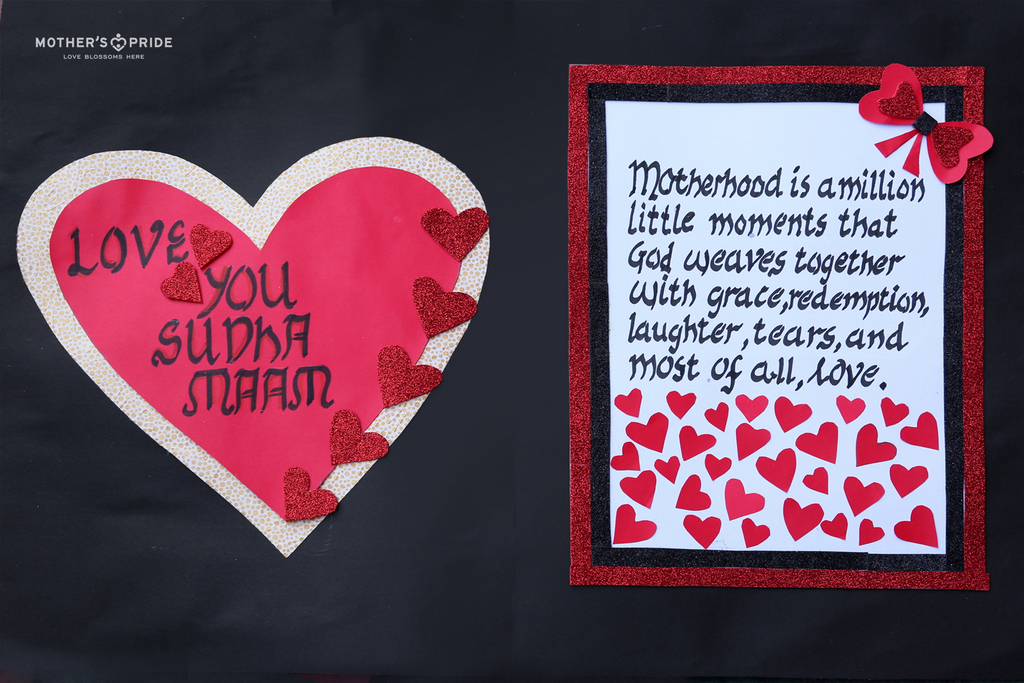 MOTHER'S PRIDE
LOVE BLOSSOMS HERE
LOVE
YOU
SUDHA
MAAM
Motherhood is a million
little moments that
God weaves together
with grace, redemption,
laughter, tears, and
most of all, love.